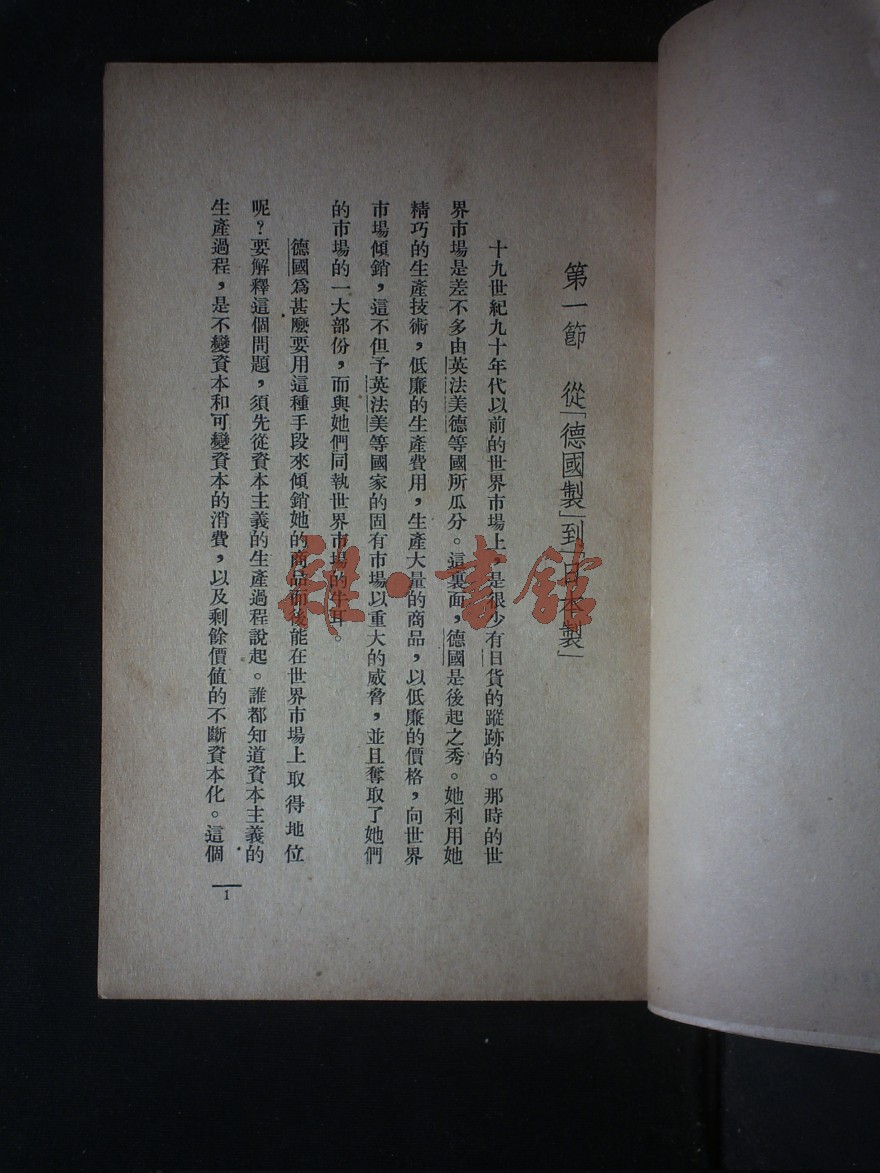 第一節　從「德國製」到「日本製」
十九世紀九十年代以前的世界市場上，是很少有日貨的蹤跡的。那時的世
界市場是差不多由英法美德等國所瓜分。這裏面，德國是後起之秀。她利用她
精巧的生產技術，低廉的生產費用，生產大量的商品，以低廉的價格，向世界
市場傾銷，這不但予英法美等國家的固有市場以重大的威脅，並且奪取了她們
的市場的一大部份，而與她們同執世界市場的牛耳。
德國爲甚麼要用這種手段來傾銷她的商品而後能在世界市場上取得地位
呢？要解釋這個問題，須先從資本主義的生產過程說起。誰都知道資本主義的
生產過程，是不變資本和可變資本的消費，以及剩餘價值的不斷資本化。這個
1
雜·書館